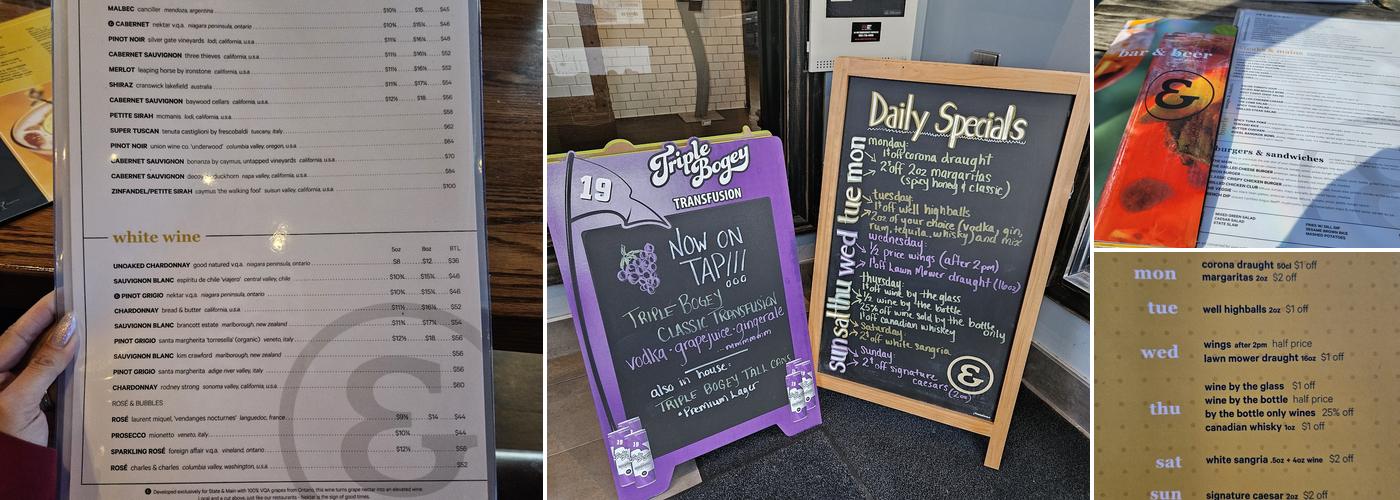 MALBEC canciller mendoza, argentina $10½ $15 $45
CABERNET nektar v.q.a. niagara peninsula, ontario $10½ $15½ $46
PINOT NOIR silver gate vineyards lodi, california, u.s.a $11½ $16½ $48
CABERNET SAUVIGNON three thieves california, u.s.a $11½ $16½ $52
MERLOT leaping horse by ironstone california, u.s.a $11½ $16½ $52
SHIRAZ cranswick lakefield australia $11½ $17½ $54
CABERNET SAUVIGNON baywood cellars california, u.s.a. $12½ $18 $56
PETITE SIRAH mcmanis lodi, california, u.s.a $58
SUPER TUSCAN tenuta castiglioni by frescobaldi tuscany, italy $62
PINOT NOIR union wine co. 'underwood' columbia valley, oregon, u.s.a $64
CABERNET SAUVIGNON bonanza by caymus, untapped vineyards california, u.s.a. $70
CABERNET SAUVIGNON duckhorn napa valley, california, u.s.a $84
ZINFANDEL/PETITE SIRAH caymus 'the walking fool' suisun valley, california, u.s.a $100
white wine
5oz 8oz BTL
UNOAKED CHARDONNAY good natured v.q.a. niagara peninsula, ontario $8 $12 $36
SAUVIGNON BLANC espiritu de chile 'viajero' central valley, chile $10½ $15½ $46
PINOT GRIGIO nektar v.q.a. niagara peninsula, ontario $10½ $15½ $46
CHARDONNAY bread & butter california, u.s.a $11½ $16½ $52
SAUVIGNON BLANC brancott estate marlborough, new zealand $11½ $17½ $54
PINOT GRIGIO santa margherita 'torresella' (organic) veneto, italy $12½ $18 $56
SAUVIGNON BLANC kim crawford marlborough, new zealand $56
PINOT GRIGIO santa margherita adige river valley, italy $56
CHARDONNAY rodney strong sonoma valley, california, u.s.a. $60
ROSÉ & BUBBLES
ROSÉ laurent miquel, 'vendanges nocturnes' languedoc, france $9½ $14 $44
PROSECCO mionetto veneto, italy $10½ $44
SPARKLING ROSÉ foreign affair v.q.a. vineland, ontario $12½ $56
ROSÉ charles & charles columbia valley, washington, u.s.a. $52
Developed exclusively for State & Main with 100% VQA grapes from Ontario, this wine turns grape nektar into an elevated wine.
Local and a cut above, just like our restaurants - Nektar is the sign of good times.
&
19
Triple Bogey
TRANSFUSION
NOW ON
TAP!!!
TRIPLE BOGEY
CLASSIC TRANSFUSION
vodka·grapejuice·gingerale
also in house:
TRIPLE BOGEY TALL CANS
•Premium Lager
Daily Specials
sun sat thu wed tue mon
monday:
1$ off corona draught
2$ off 2oz margaritas
(spicy honey & classic)
tuesday:
1$ off well highballs
2oz of your choice (vodka, gin,
rum, tequila, whisky) and mix
wednesday:
1/2 price wings (after 2pm)
1$ off Lawn Mower draught (16oz)
thursday:
1$ off wine by the glass
1/2 wine by the bottle
25% off wine sold by the bottle only
1$ off canadian whiskey
Saturday:
2$ off white sangria
Sunday:
2$ off signature
caesars (2oz)
&
bar & beer
&
mains
burgers & sandwiches
MIXED GREEN SALAD
CAESAR SALAD
STATE SLAW
mon corona draught 50cl $1 off
margaritas 2oz $2 off
tue well highballs 2oz $1 off
wed wings after 2pm half price
lawn mower draught 16oz $1 off
thu wine by the glass $1 off
wine by the bottle half price
by the bottle only wines 25% off
canadian whisky 1oz $1 off
sat white sangria .5oz + 4oz wine $2 off
sun signature caesar 2oz $2 off